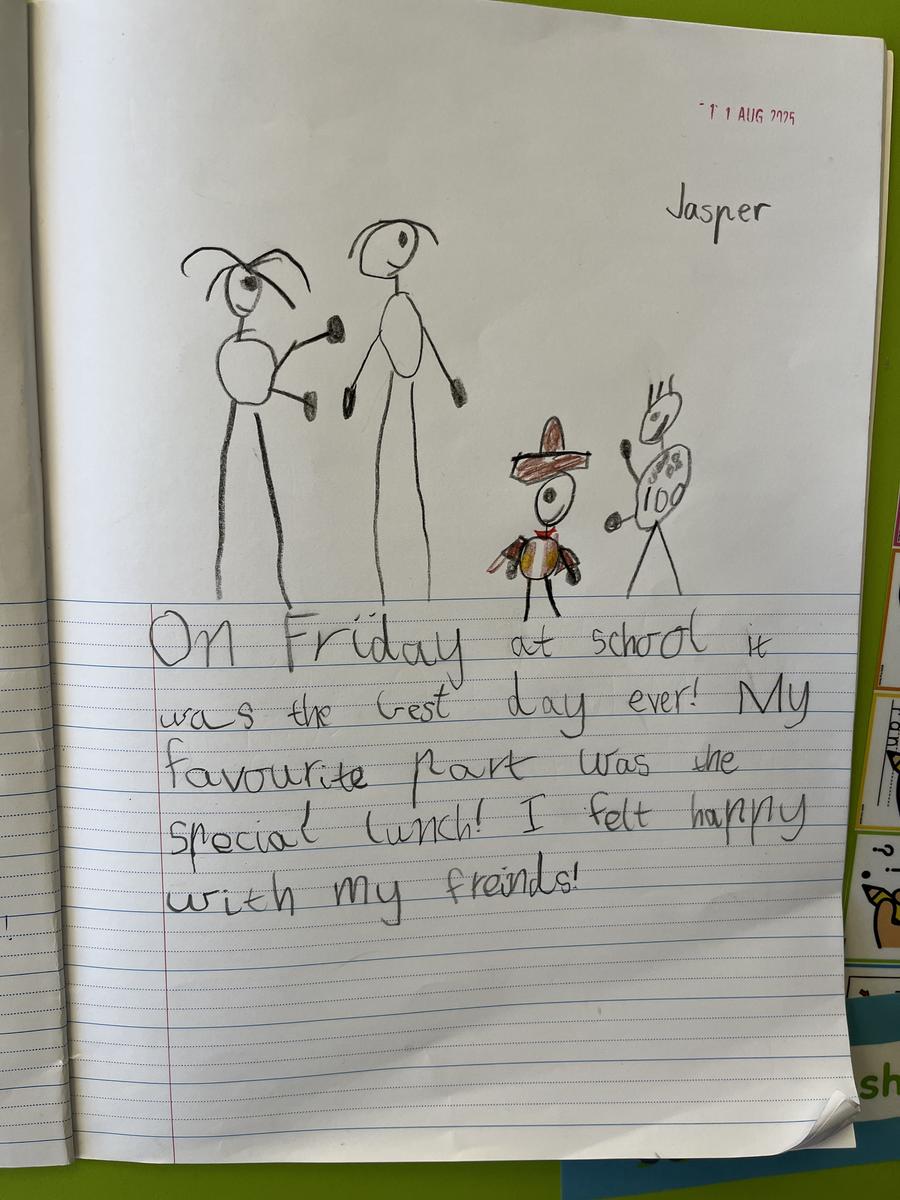 11 AUG 2025
Jasper
100
On Friday at school it
was the best day ever! My
favourite part was the
special lunch! I felt happy
with my freinds!
can
? !
sh